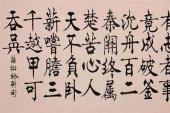 有志者事
竟成破釜
沉舟百二
秦關終属
楚苦心人
天不負卧
薪嘗膽三
千越甲可
吞吳
蒲松齡聯句